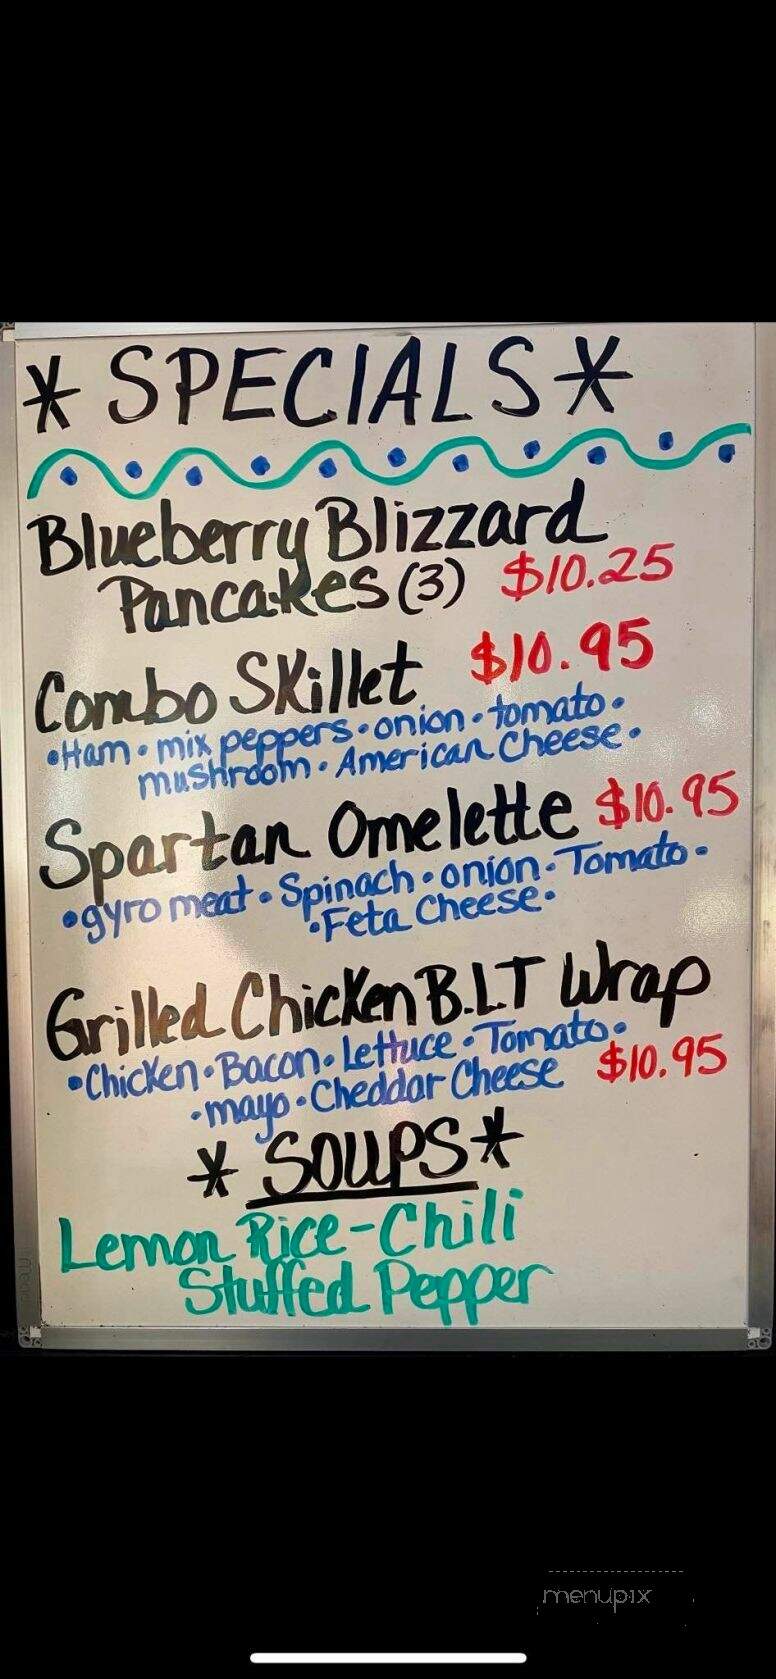 * SPECIALS *
Blueberry Blizzard
Pancakes (3) $10.25
Combo Skillet $10.95
•Ham • mix peppers • onion • tomato •
mushroom • American Cheese •
Spartan Omelette $10.95
•gyro meat • Spinach • onion • Tomato •
•Feta Cheese•
Grilled Chicken B.L.T Wrap
•Chicken • Bacon • Lettuce • Tomato •
•mayo • Cheddar Cheese $10.95
* SOUPS *
Lemon Rice - Chili
Stuffed Pepper
menupix